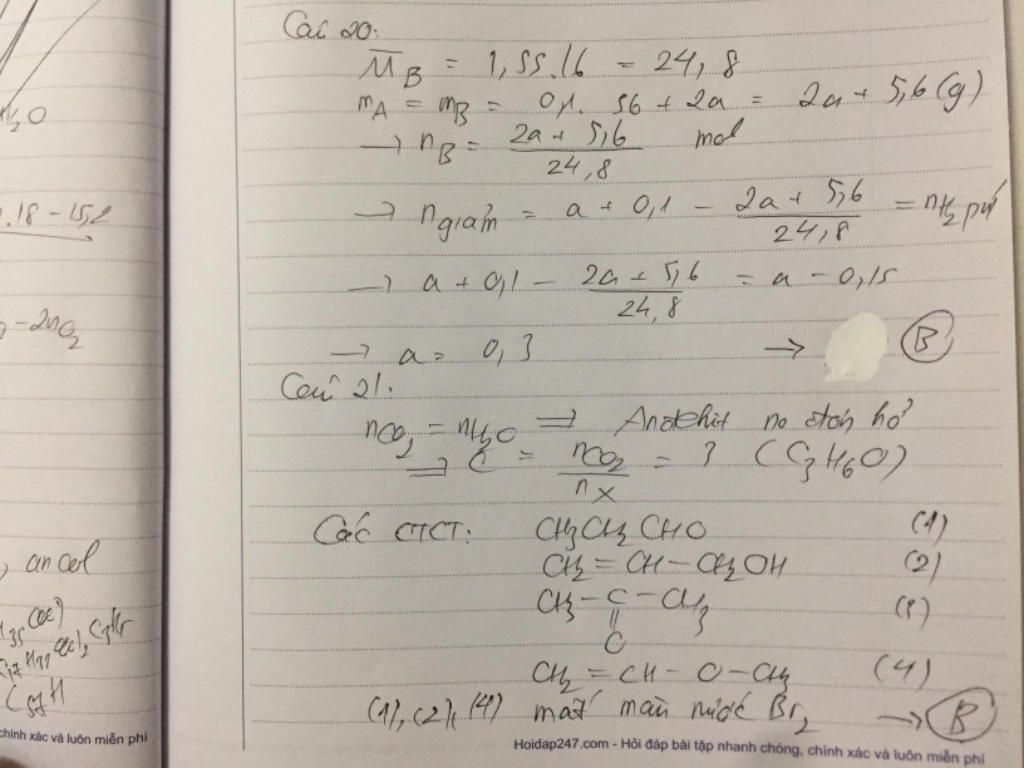 H₂O
.18 - 15,2
- 2nO₂
, ancol
chính xác và luôn miễn phí
Câu 20:
M̅_B = 1,55.16 = 24,8
m_A = m_B = 0,1. 56 + 2a = 2a + 5,6 (g)
→ n_B = (2a + 5,6)/24,8 mol
→ n giảm = a + 0,1 - (2a + 5,6)/24,8 = nH₂ pứ
→ a + 0,1 - (2a + 5,6)/24,8 = a - 0,15
→ a = 0,3 → B
Câu 21:
nCO₂ = nH₂O ⇒ Anđehit no đơn hở
⇒ C = nCO₂/nX = 3 (C₃H₆O)
Các CTCT: CH₃CH₂CHO (1)
CH₂ = CH - CH₂OH (2)
CH₃ - C - CH₃ (3)
||
O
CH₂ = CH - O - CH₃ (4)
(1), (2), (4) mất màu nước Br₂ → B
Hoidap247.com - Hỏi đáp bài tập nhanh chóng, chính xác và luôn miễn phí